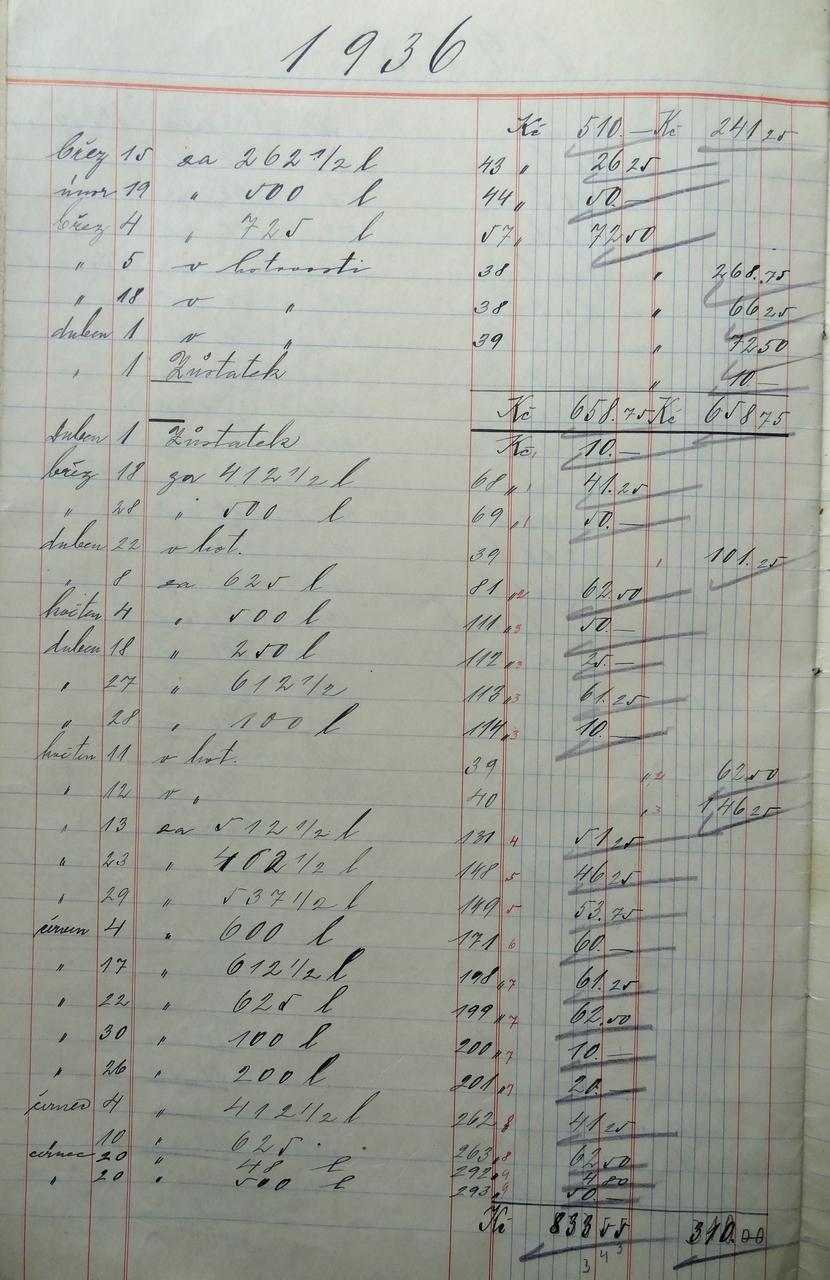 1936
Kč 510.— Kč 241 25
břez 15 za 262 1/2 l 43 „ 26 25
únor 19 „ 500 l 44 „ 50.—
břez 4 „ 725 l 57 „ 72 50
„ 5 v hotovosti 38 „ 268.75
„ 18 v „ 38 „ 66 25
duben 1 v „ 39 „ 72 50
„ 1 Zůstatek „ 10.—
Kč 658.75 Kč 658 75
Duben 1 Zůstatek Kč 10.—
břez 18 za 412 1/2 l 68 „ 1 41.25
„ 28 „ 500 l 69 „ 1 50.—
duben 22 v hot. 39 1 101.25
„ 8 za 625 l 81 „ 2 62.50
květen 4 „ 500 l 111 „ 3 50.—
duben 18 „ 250 l 112 „ 3 25.—
„ 27 „ 612 1/2 113 „ 3 61.25
„ 28 „ 100 l 114 „ 3 10.—
květen 11 v hot. 39 „ 2 62 50
„ 12 v „ 40 „ 3 146 25
„ 13 za 512 1/2 l 131 4 51 25
„ 23 „ 462 1/2 l 148 5 46 25
„ 29 „ 537 1/2 l 149 5 53.75
červen 4 „ 600 l 171 6 60.—
„ 17 „ 612 1/2 l 198 „ 7 61.25
„ 22 „ 625 l 199 „ 7 62.50
„ 30 „ 100 l 200 „ 7 10.—
„ 26 „ 200 l 201 „ 7 20.—
červenec 4 „ 412 1/2 l 262 8 41 25
10 „ 625 263 „ 8 62 50
červenec 20 „ 48 l 292 „ 9 4 80
„ 20 „ 500 l 293 „ 9 50.—
Kč 833 55 310.00
3 4 3